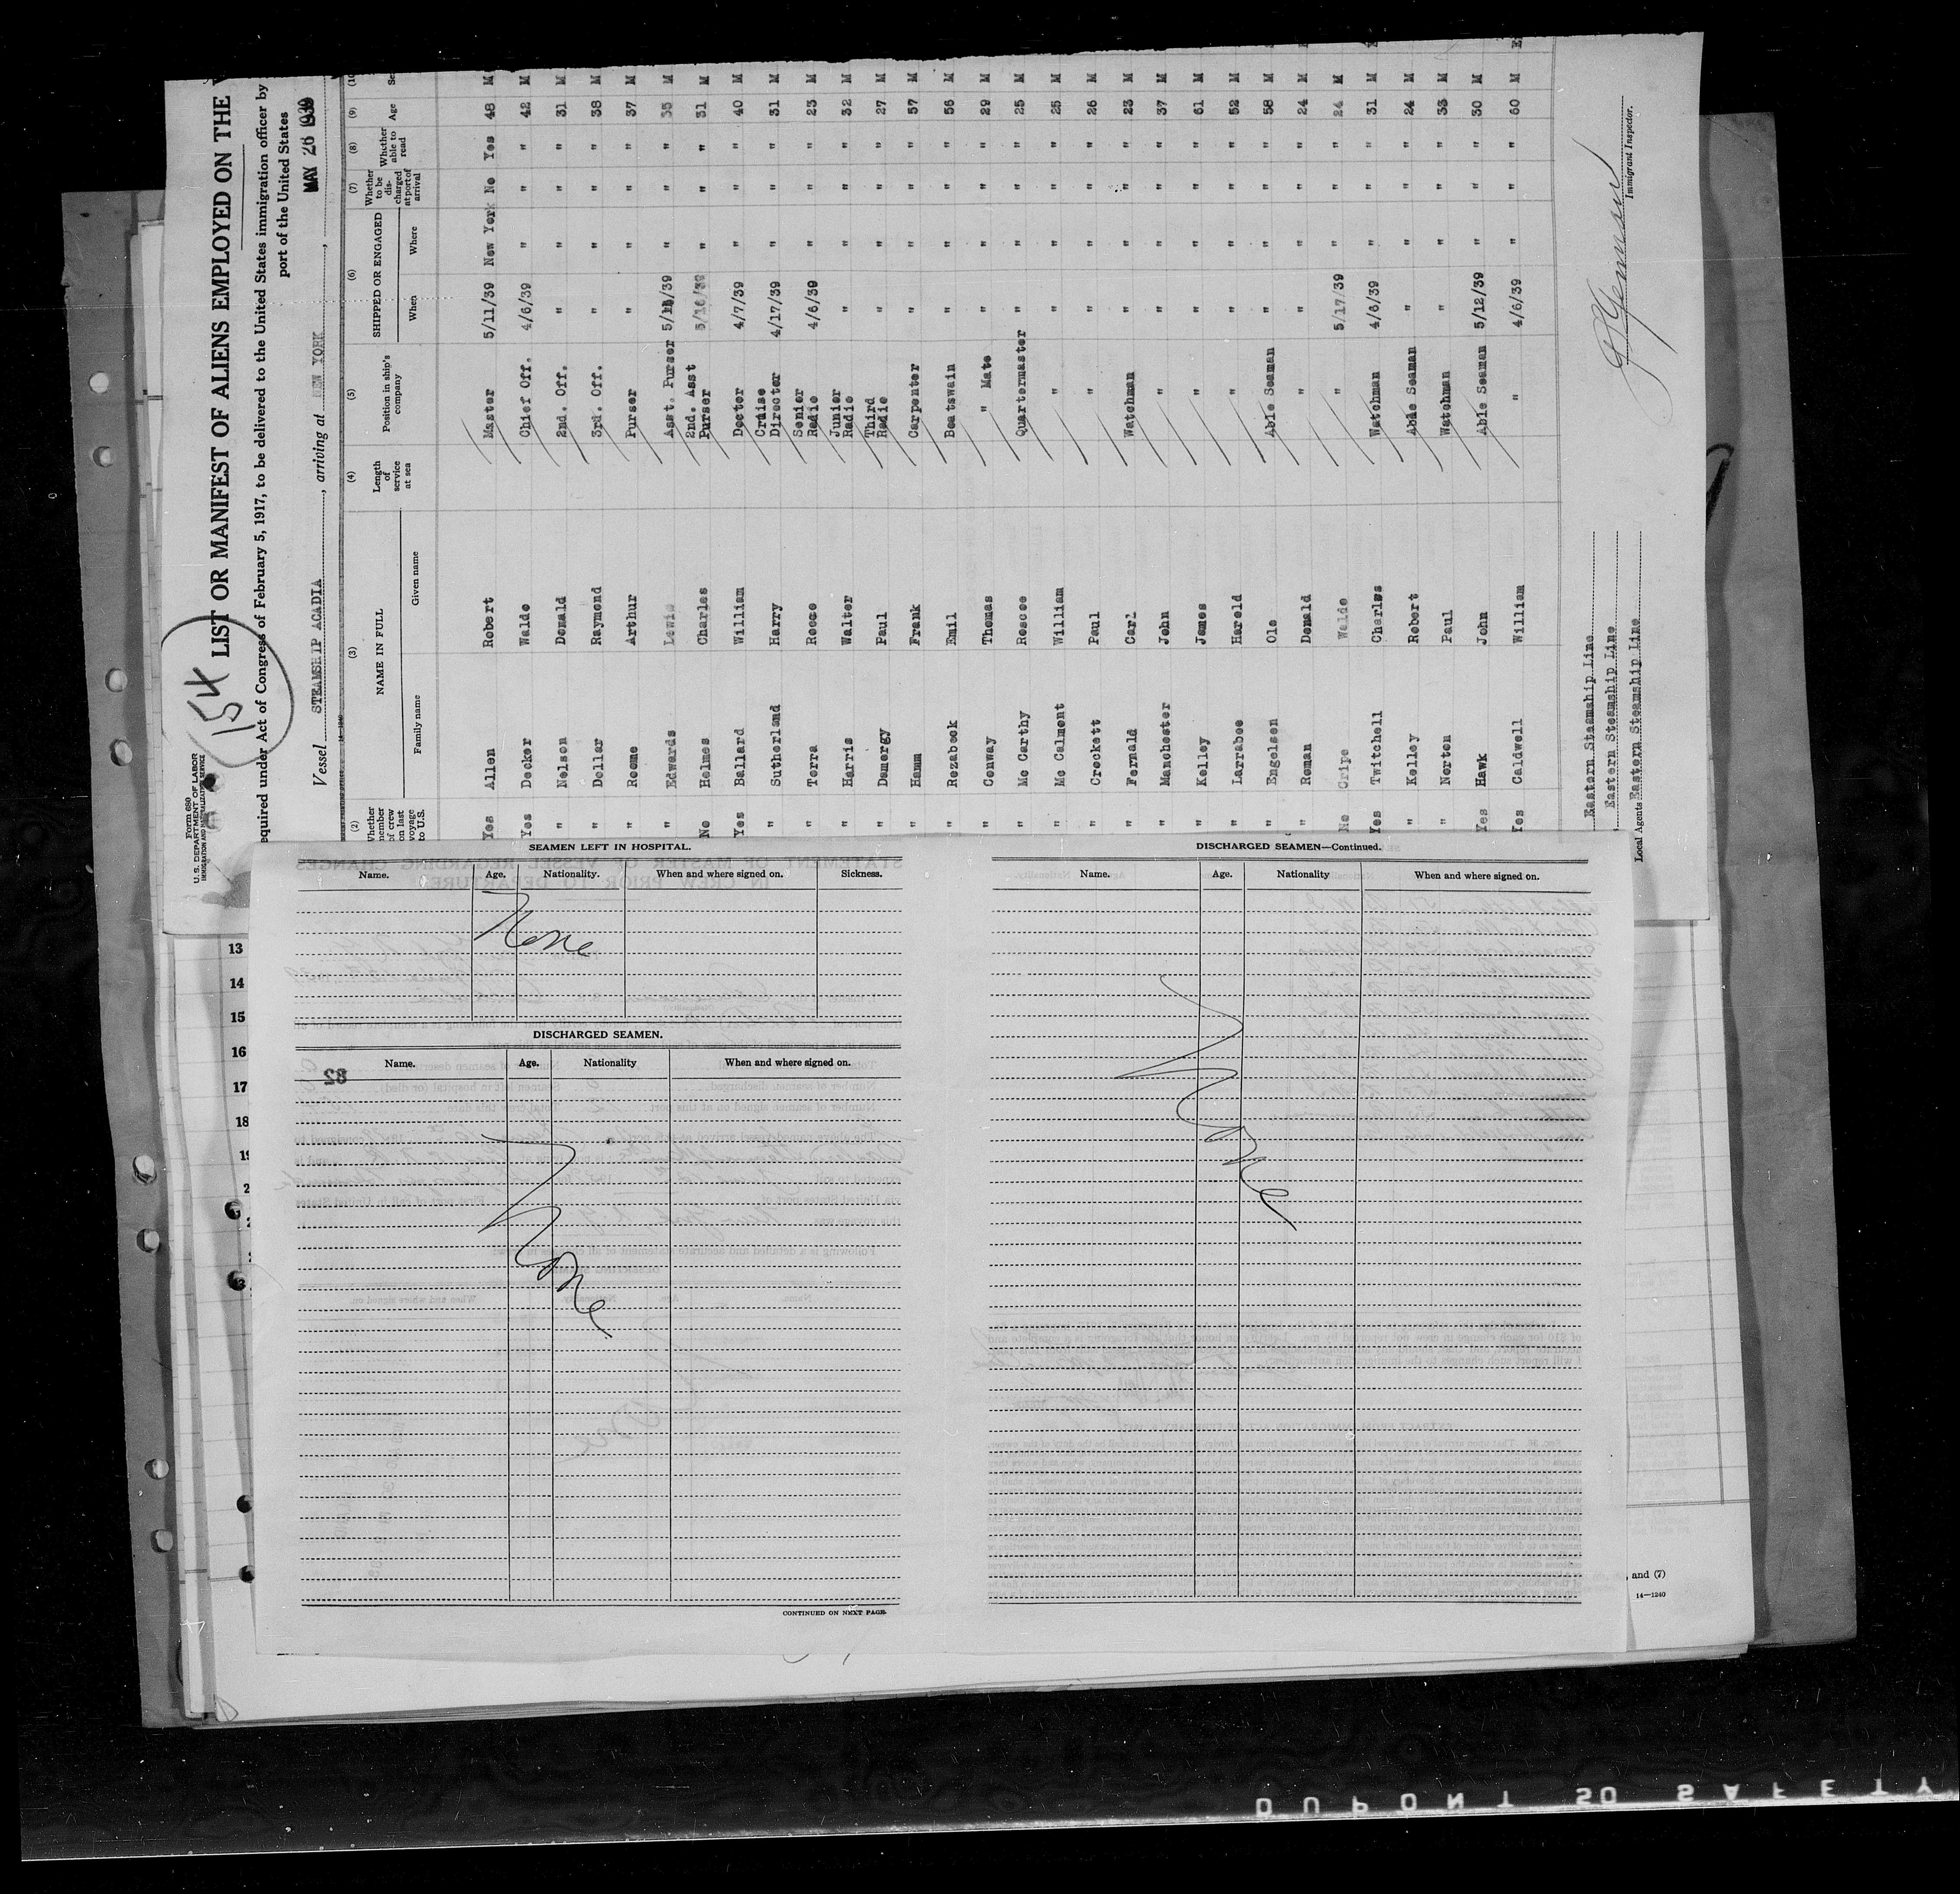 154
Form 680
U. S. DEPARTMENT OF LABOR
IMMIGRATION AND NATURALIZATION SERVICE
LIST OR MANIFEST OF ALIENS EMPLOYED ON THE
equired under Act of Congress of February 5, 1917, to be delivered to the United States immigration officer by
port of the United States
Vessel STEAMSHIP ACADIA, arriving at NEW YORK, MAY 26 1939
(2) (3) (4) (5) (6) (7) (8) (9) (10
Whether member of crew on last voyage to U.S. NAME IN FULL Family name Given name Length of service at sea Position in ship's company SHIPPED OR ENGAGED When Where Whether to be discharged at port of arrival Whether able to read Age Se
Yes Allen Robert Master 5/11/39 New York No Yes 48 M
Yes Decker Walde Chief Off. 4/6/39 " " " 42 M
" Nelson Donald 2nd. Off. " " " " 31 M
" Dollar Raymond 3rd. Off. " " " " 38 M
" Roome Arthur Purser " " " " 37 M
" Edwards Lewis Asst. Purser " " " 35 M
No Holmes Charles 2nd. Asst Purser 5/16/39 " " " 31 M
Yes Ballard William Doctor 4/7/39 " " " 40 M
" Sutherland Harry Cruise Director 4/17/39 " " " 31 M
" Torra Rocco Senior Radio 4/6/39 " " " 23 M
" Harris Walter Junior Radio " " " " 32 M
" Damergy Paul Third Radio " " " " 27 M
" Hamm Frank Carpenter " " " " M
" Rezabeck Emil Boatswain " " " " 56 M
" Conway Thomas " Mate " " " " 29 M
" Mc Carthy Roscoe Quartermaster " " " " 25 M
" Mc Calmont William " " " " " 25 M
" Crockett Paul " " " " " 26 M
" Fernald Carl Watchman " " " " 23 M
" Manchester John " " " " " 37 M
" Kelley James " " " " " 61 M
" Larrabee Harold " " " " " 52 M
" Engelsen Ole Able Seaman " " " " 58 M
" Roman Donald " " " " " 24 M
No Cripe Waldo " 5/17/39 " " " 24 M
Yes Twitchell Charles Watchman 4/6/39 " " " 31 M
" Kelley Robert Able Seaman " " " " 24 M
" Norton Paul Watchman " " " " 33 M
Yes Hawk John Able Seaman 5/12/39 " " " 30 M
Yes Caldwell William " 4/6/39 " " " 60 M
Eastern Steamship Line
Eastern Steamship Line
Local Agents Eastern Steamship Line
Immigrant Inspector.
SEAMEN LEFT IN HOSPITAL.
Name. Age. Nationality. When and where signed on. Sickness.
None
DISCHARGED SEAMEN.
Name. Age. Nationality When and where signed on.
82
None
CONTINUED ON NEXT PAGE.
DISCHARGED SEAMEN—Continued.
Name. Age. Nationality When and where signed on.
None
13
14
15
16
17
18
19
2
, and (7)
14—1240
DUPONT 50 SAFETY